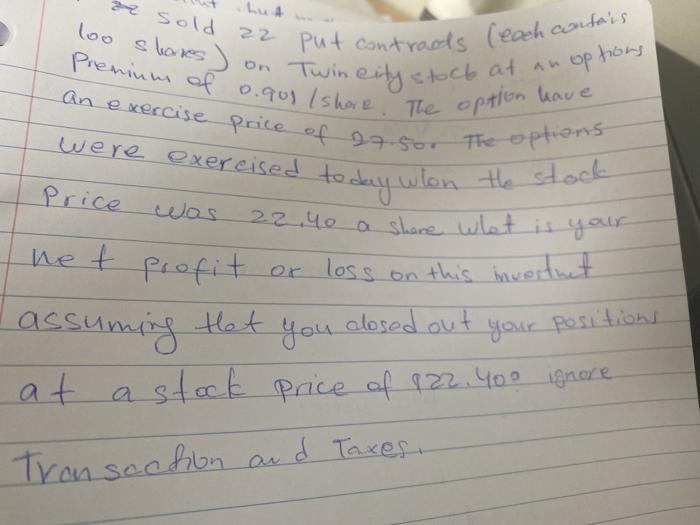 sold 22 put contracts (each contais
100 shares) on Twin city stock at an options
Premium of 0.901/share. The option have
an exercise price of 27.50. The options
were exercised today wlen the stock
Price was 22.40 a share wlat is your
net profit or loss on this investmt
assuming tlat you closed out your positions
at a stock price of $22.40? ignore
Transaction and Taxes.